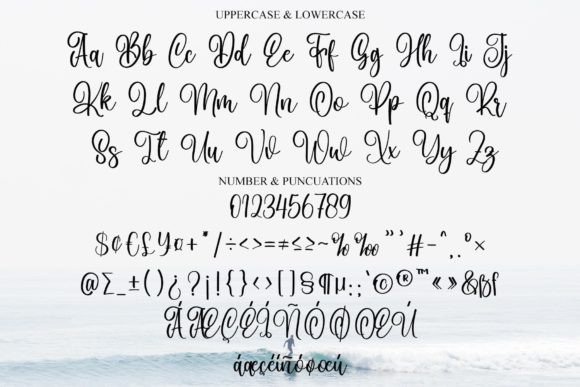 UPPERCASE & LOWERCASE
Aa Bb Cc Dd Ee Ff Gg Hh Ii Jj
Kk Ll Mm Nn Oo Pp Qq Rr
Ss Tt Uu Vv Ww Xx Yy Zz
NUMBER & PUNCUATIONS
0123456789
$¢€£¥¤+*/÷<>=≠≤≥~%‰”’#-^¸.°×
@∑_±()¿?¡!{}‹›[]§¶µ:;`©®™«»&ßf
ÁÆÇÉÍÑÓØŒÚ
áæçéíñóøœú